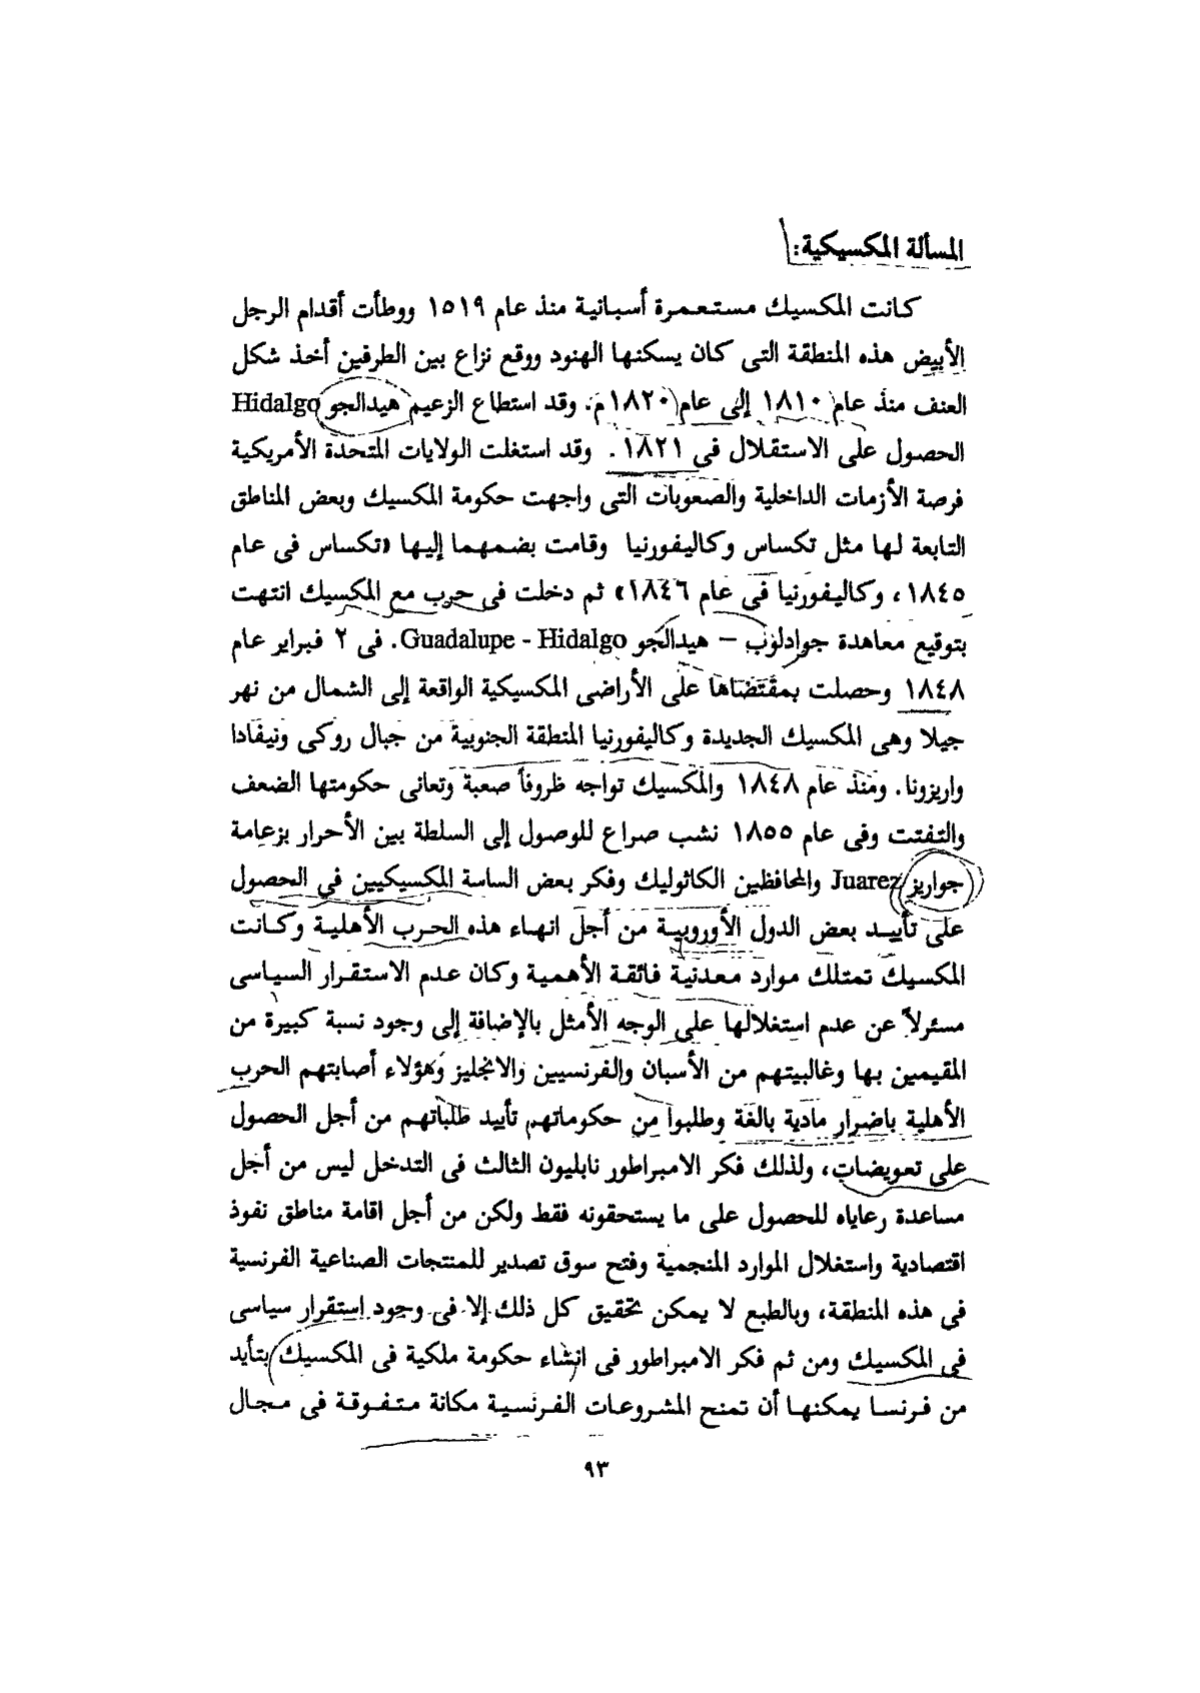 المسألة المكسيكية:
كانت المكسيك مستعمرة أسبانية منذ عام ١٥١٩ ووطأت أقدام الرجل
الأبيض هذه المنطقة التى كان يسكنها الهنود ووقع نزاع بين الطرفين أخذ شكل
العنف منذ عام ١٨١٠ إلى عام ١٨٢٠م. وقد استطاع الزعيم هيدالجو Hidalgo
الحصول على الاستقلال فى ١٨٢١. وقد استغلت الولايات المتحدة الأمريكية
فرصة الأزمات الداخلية والصعوبات التى واجهت حكومة المكسيك وبعض المناطق
التابعة لها مثل تكساس وكاليفورنيا وقامت بضمهما إليها «تكساس فى عام
١٨٤٥، وكاليفورنيا فى عام ١٨٤٦» ثم دخلت فى حرب مع المكسيك انتهت
بتوقيع معاهدة جوادلوب – هيدالجو Guadalupe - Hidalgo. فى ٢ فبراير عام
١٨٤٨ وحصلت بمقتضاها على الأراضى المكسيكية الواقعة إلى الشمال من نهر
جيلا وهى المكسيك الجديدة وكاليفورنيا المنطقة الجنوبية من جبال روكى ونيفادا
واريزونا. ومنذ عام ١٨٤٨ والمكسيك تواجه ظروفاً صعبة وتعانى حكومتها الضعف
والتفتت وفى عام ١٨٥٥ نشب صراع للوصول إلى السلطة بين الأحرار بزعامة
جواريز Juarez والمحافظين الكاثوليك وفكر بعض الساسة المكسيكيين فى الحصول
على تأييد بعض الدول الأوروبية من أجل انهاء هذه الحرب الأهلية وكانت
المكسيك تمتلك موارد معدنية فائقة الأهمية وكان عدم الاستقرار السياسى
مسئرلاً عن عدم استغلالها على الوجه الأمثل بالإضافة إلى وجود نسبة كبيرة من
المقيمين بها وغالبيتهم من الأسبان والفرنسيين والانجليز وهؤلاء أصابتهم الحرب
الأهلية باضرار مادية بالغة وطلبوا من حكوماتهم تأييد طلباتهم من أجل الحصول
على تعويضات، ولذلك فكر الامبراطور نابليون الثالث فى التدخل ليس من أجل
مساعدة رعاياه للحصول على ما يستحقونه فقط ولكن من أجل اقامة مناطق نفوذ
اقتصادية واستغلال الموارد المنجمية وفتح سوق تصدير للمنتجات الصناعية الفرنسية
فى هذه المنطقة، وبالطبع لا يمكن تحقيق كل ذلك إلا فى وجود استقرار سياسى
فى المكسيك ومن ثم فكر الامبراطور فى انشاء حكومة ملكية فى المكسيك بتأيد
من فرنسا يمكنها أن تمنح المشروعات الفرنسية مكانة متفوقة فى مجال
٩٣